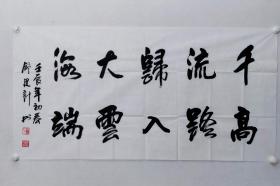 千流歸大海
高路入雲端
壬辰年初春